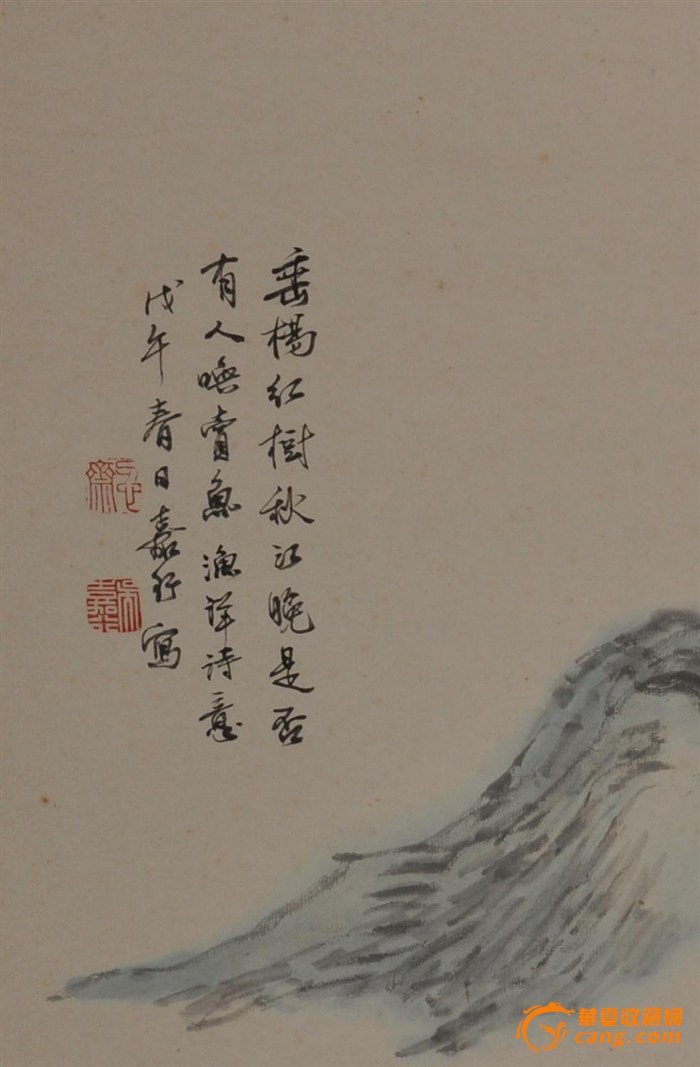 垂楊红樹秋江晚是否
有人喚賣魚漁洋诗意
戊午春日嘉行寫
華夏收藏網
cang.com